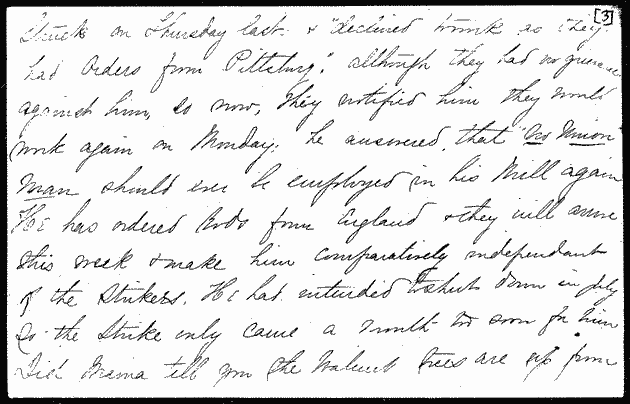 [3]
Struck on Thursday last & "declined to work as they
had orders from Pittsburg", although they had no grievance
against him, So now, they notified him they would
work again on Monday; he answered, that "No Union
Man should ever be employed in his Mill again
He has ordered Rods from England & they will arrive
this week & make him comparatively independant
of the Strikers. He had intended to shut down in July
So the Strike only came a month too soon for him
Did Mama tell you the Walnut trees are up from